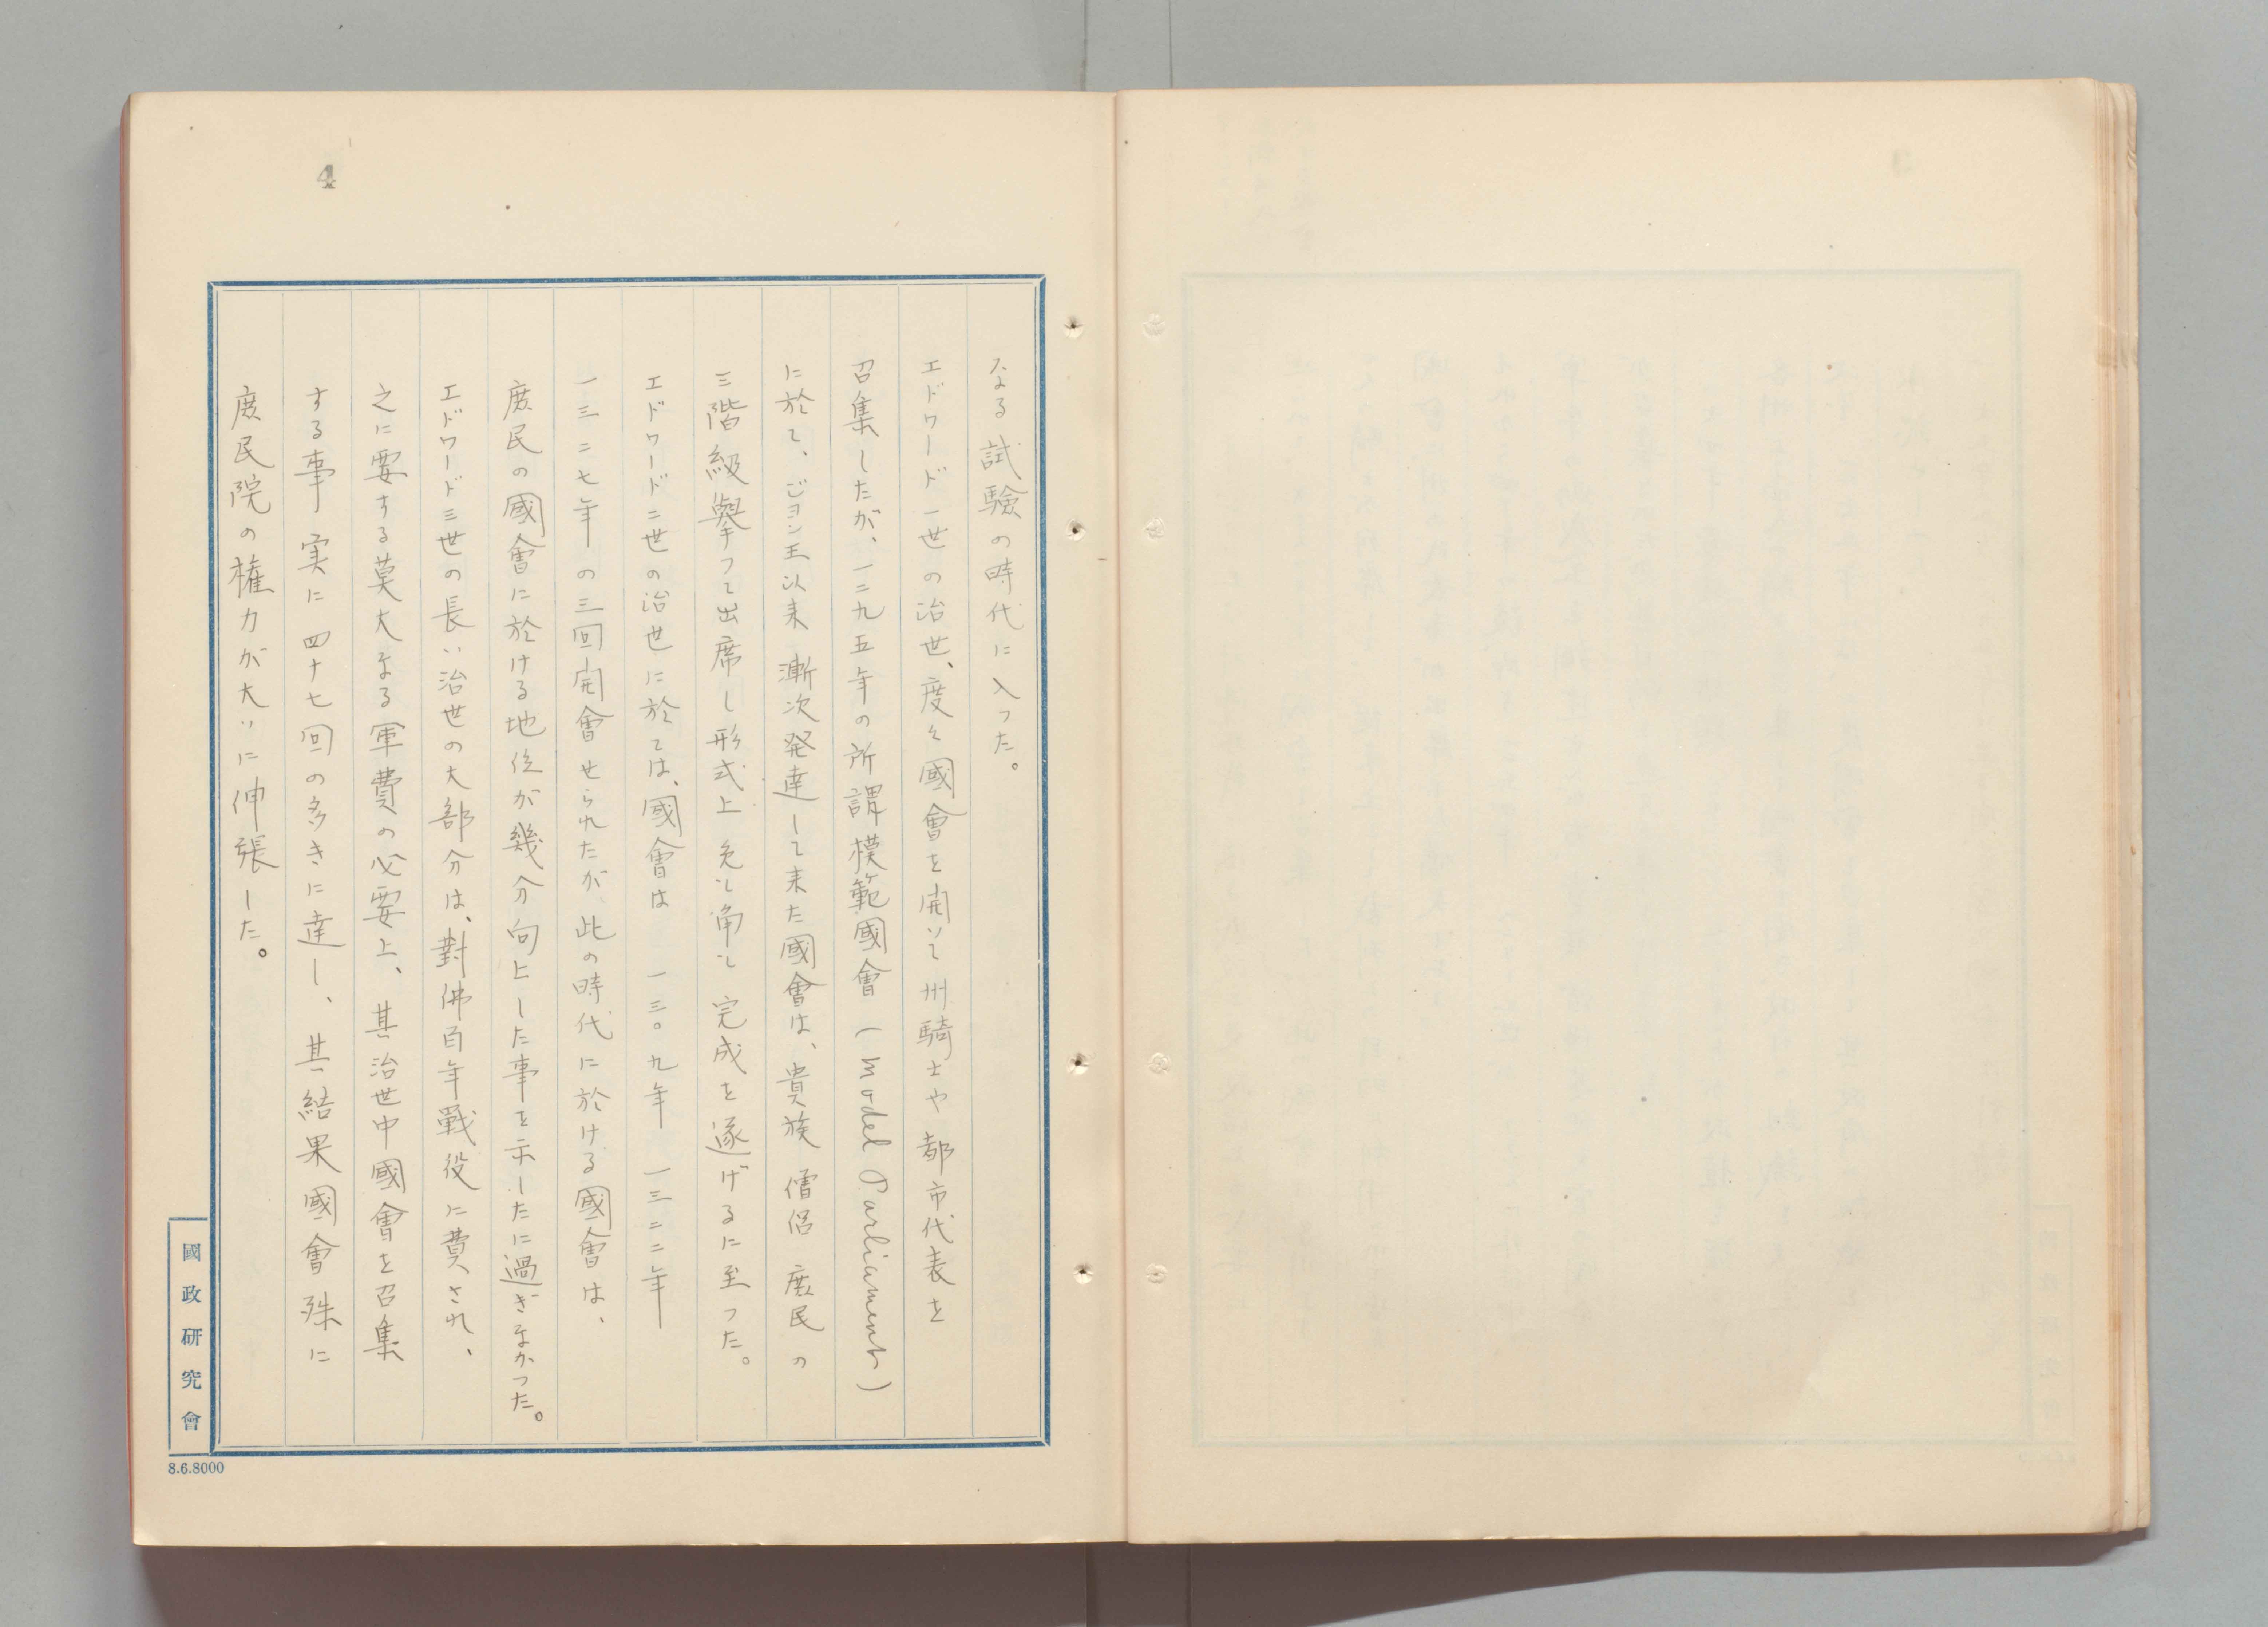 4
なる試験の時代に入つた。
エドワード一世の治世、度々國會を開いて州騎士や都市代表を
召集したが、一二九五年の所謂模範國會(Model Parliament)
に於て、ジヨン王以来漸次発達して来た國會は、貴族 僧侶 庶民の
三階級擧つて出席し形式上兎に角に完成を遂げるに至つた。
エドワード二世の治世に於ては、國會は 一三〇九年 一三二二年
一三二七年の三回開會せられたが 此の時代に於ける國會は、
庶民の國會に於ける地位が幾分向上した事を示したに過ぎなかつた。
エドワード三世の長い治世の大部分は、對佛百年戰役に費され、
之に要する莫大なる軍費の必要上、其治世中國會を召集
する事実に四十七回の多きに達し、其結果國會殊に
庶民院の権力が大いに伸張した。
國政研究會
8.6.8000